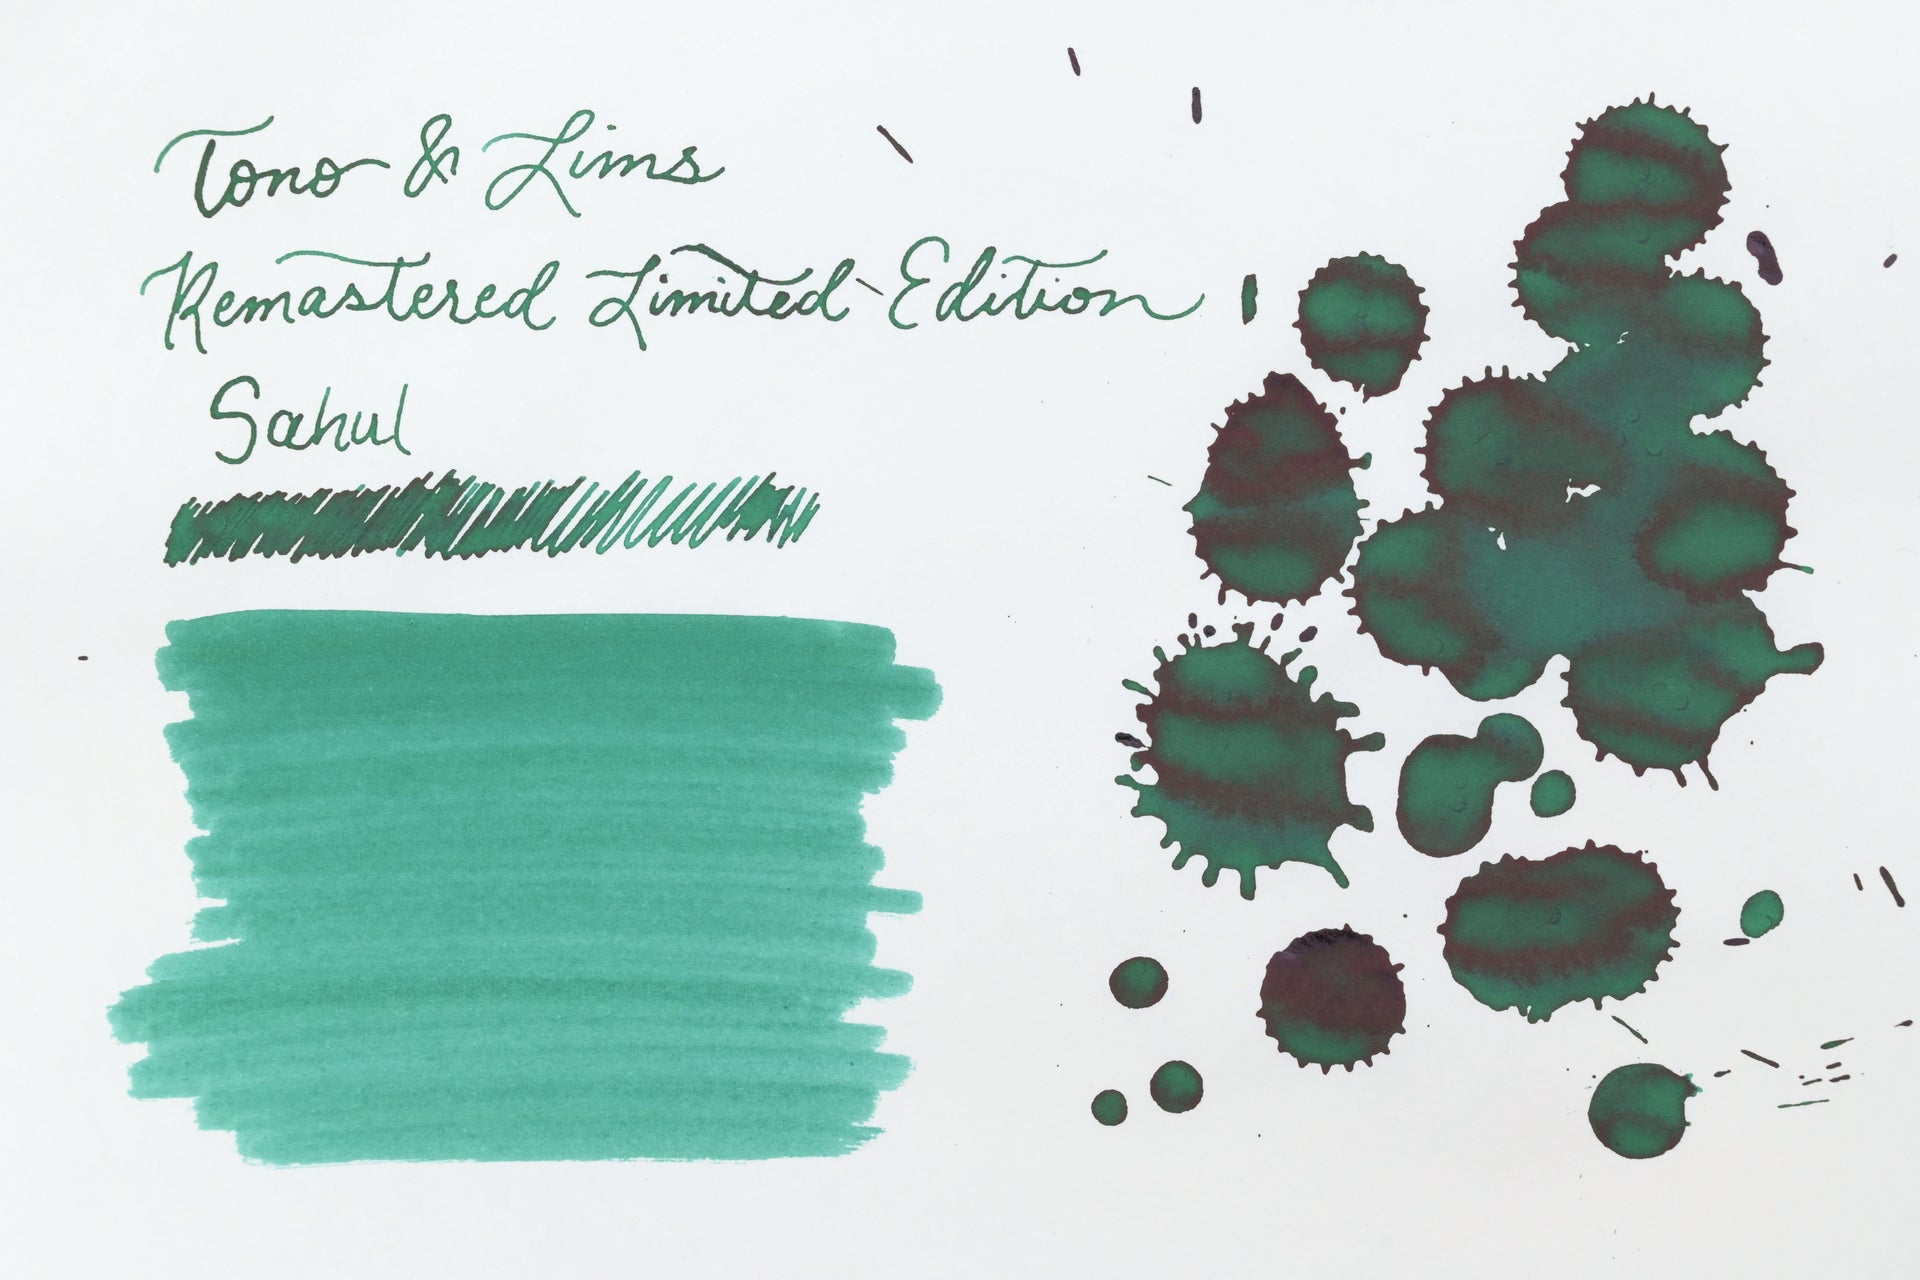 Tono & Lims
Remastered Limited Edition
Sahul